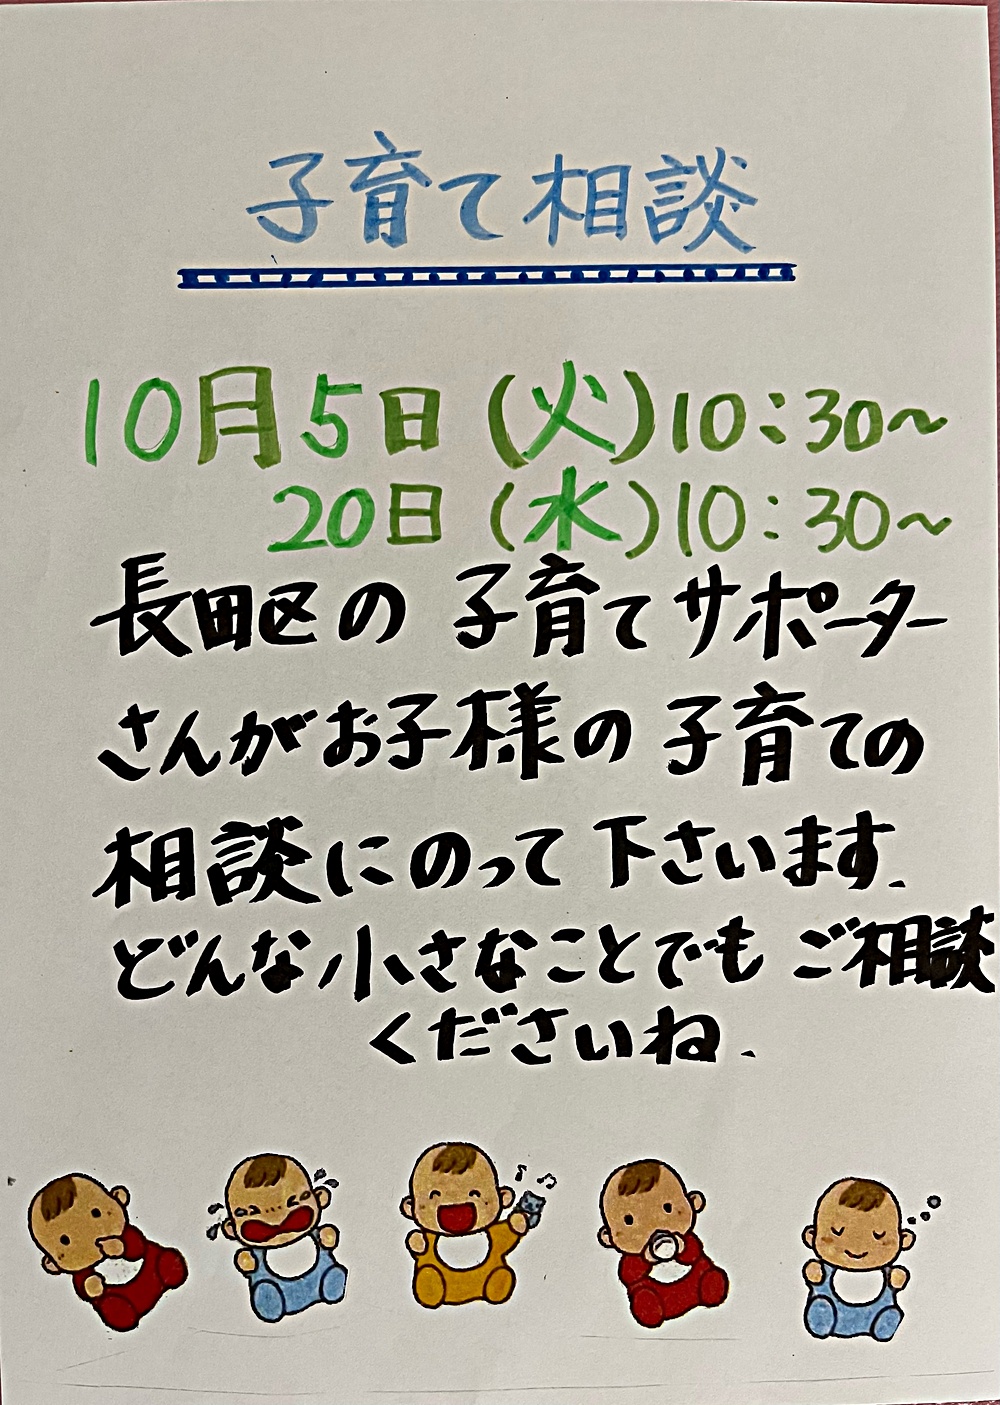 子育て相談
10月5日(火)10:30~
20日(水)10:30~
長田区の子育てサポーター
さんがお子様の子育ての
相談にのって下さいます.
どんな小さなことでもご相談
くださいね.